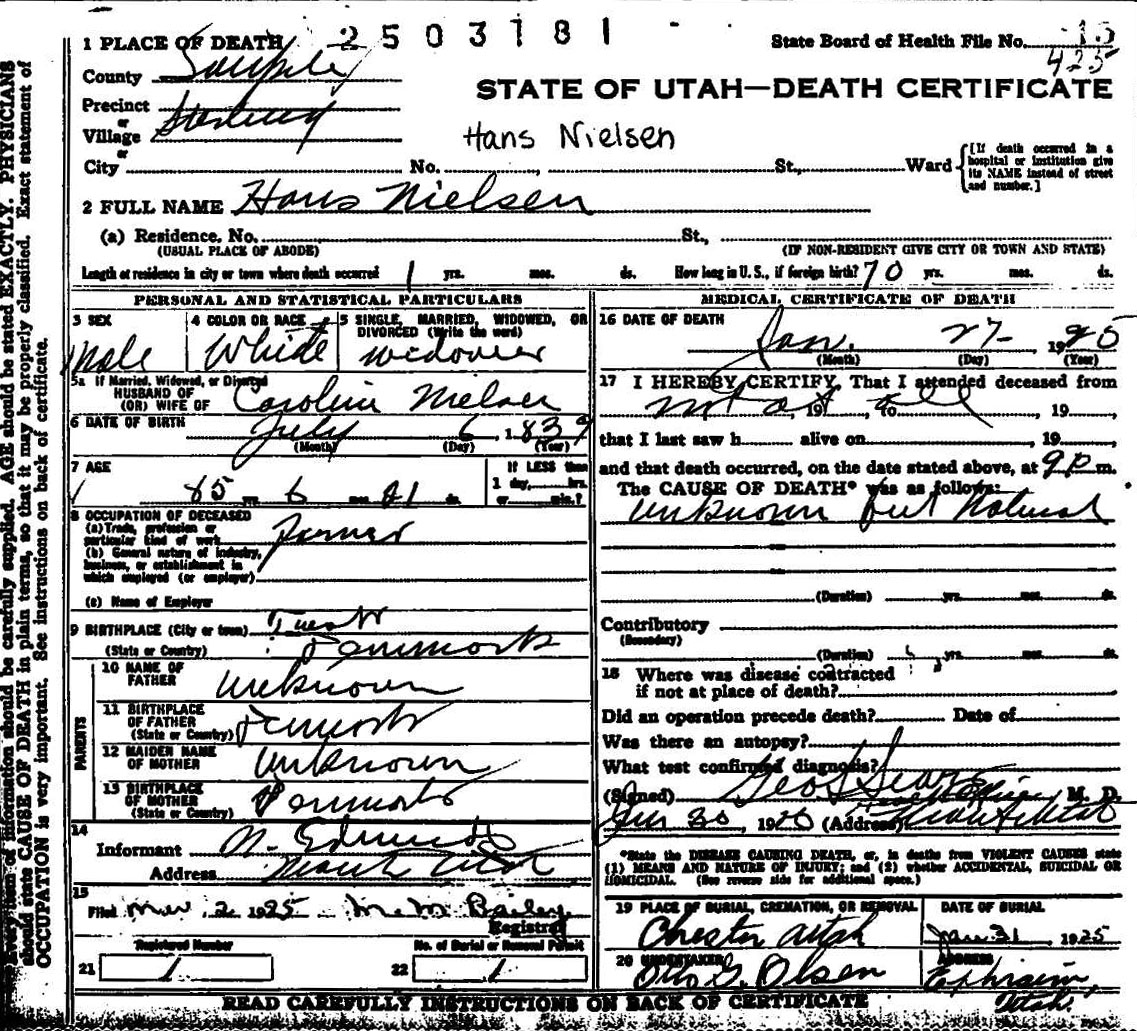 1 PLACE OF DEATH 2503181
State Board of Health File No. 15
425
County Sanpete
STATE OF UTAH—DEATH CERTIFICATE
Precinct Sterling
or
Village
or
Hans Nielsen
City No. , St., Ward
[If death occurred in a hospital or institution give its NAME instead of street and number.]
2 FULL NAME Hans Nielsen
(a) Residence. No. St.,
(USUAL PLACE OF ABODE) (IF NON-RESIDENT GIVE CITY OR TOWN AND STATE)
Length of residence in city or town where death occurred 1 yrs. mos. ds. How long in U. S., if foreign birth? 70 yrs. mos. ds.
PERSONAL AND STATISTICAL PARTICULARS
3 SEX
Male
4 COLOR OR RACE
White
5 SINGLE, MARRIED, WIDOWED, OR DIVORCED (Write the word)
Widower
5a If Married, Widowed, or Divorced
HUSBAND OF
(OR) WIFE OF Caroline Nielsen
6 DATE OF BIRTH July 6, 1839
(Month) (Day) (Year)
7 AGE
85 yrs 6 mos 21 ds.
If LESS than
1 day, hrs.
or min.?
8 OCCUPATION OF DECEASED
(a) Trade, profession or
particular kind of work Farmer
(b) General nature of industry,
business, or establishment in
which employed (or employer)
(c) Name of Employer
9 BIRTHPLACE (City or town)
(State or Country) Denmark
PARENTS
10 NAME OF
FATHER Unknown
11 BIRTHPLACE
OF FATHER
(State or Country) Denmark
12 MAIDEN NAME
OF MOTHER Unknown
13 BIRTHPLACE
OF MOTHER
(State or Country) Denmark
14
Informant N. Edmunds
Address Utah
15
Filed Mar. 2, 1925 M. M. Bailey
Registrar
Registered Number
21 1
No. of Burial or Removal Permit
22 1
MEDICAL CERTIFICATE OF DEATH
16 DATE OF DEATH
Jan. 27 1925
(Month) (Day) (Year)
17 I HEREBY CERTIFY, That I attended deceased from
not at, 19 , to all , 19 ,
that I last saw h alive on , 19 ,
and that death occurred, on the date stated above, at 9 P m.
The CAUSE OF DEATH* was as follows:
Unknown but Natural
(Duration) yrs. mos. ds.
Contributory
(Secondary)
(Duration) yrs. mos. ds.
18 Where was disease contracted
if not at place of death?
Did an operation precede death? Date of
Was there an autopsy?
What test confirmed diagnosis?
(Signed) Geo. L. Sears M. D.
Jan 30, 1925 (Address) Utah
*State the DISEASE CAUSING DEATH, or, in deaths from VIOLENT CAUSES state
(1) MEANS AND NATURE OF INJURY; and (2) whether ACCIDENTAL, SUICIDAL OR
HOMICIDAL. (See reverse side for additional space.)
19 PLACE OF BURIAL, CREMATION, OR REMOVAL
Chester Utah
DATE OF BURIAL
Jan. 31, 1925
20 UNDERTAKER
Otto G. Olsen
ADDRESS
Ephraim,
Utah
READ CAREFULLY INSTRUCTIONS ON BACK OF CERTIFICATE
Every item of information should be carefully supplied. AGE should be stated EXACTLY. PHYSICIANS
should state CAUSE OF DEATH in plain terms, so that it may be properly classified. Exact statement of
OCCUPATION is very important. See instructions on back of certificate.